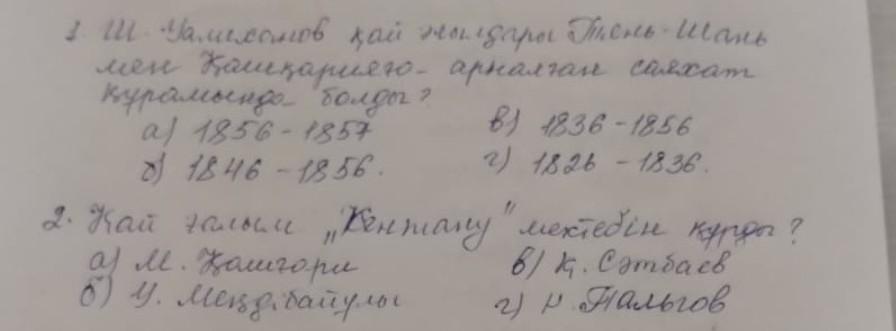 1. Ш. Уалиханов қай жылдары Тянь-Шань
мен Қашқарияға арналған саяхат
құрамында болды?
а) 1856-1857 в) 1836-1856
б) 1846-1856. г) 1826-1836.
2. Қай ғалым „Кентану" мектебін құрды?
а) М. Қашғари в) Қ. Сәтбаев
б) У. Меңдібайұлы г) Н. Пальгов